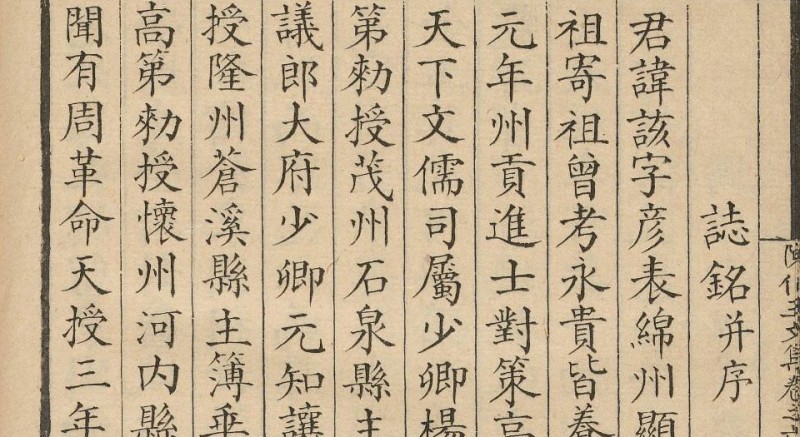 誌銘并序
君諱該字彦表綿州顯
祖寄祖曾考永貴皆養
元年州貢進士對策高
天下文儒司屬少卿楊
第勑授茂州石泉縣主
議郎大府少卿元知讓
授隆州蒼溪縣主簿垂
高第勑授懷州河内縣
聞有周革命天授三年